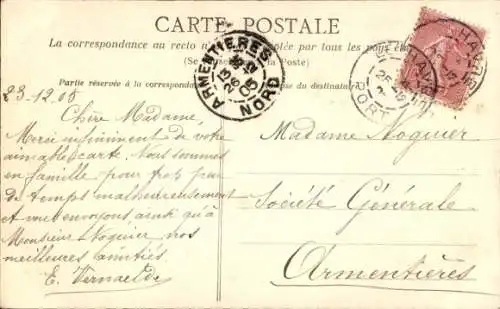 CARTE POSTALE
La correspondance au recto n'est pas acceptée par tous les pays étrangers
(Se renseigner à la Poste)
Partie réservée à la correspondance du destinataire
ARMENTIERES
NORD
HAVRE
PORT
23-12-05
Chère Madame,
Merci infiniment de votre
aimable carte. Nous sommes
en famille pour trop peu
de temps malheureusement
et vous envoyons ainsi qu'à
Monsieur Noquier nos
meilleures amitiés.
E. Vernaelde
Madame Noquier
Société Générale
Armentières